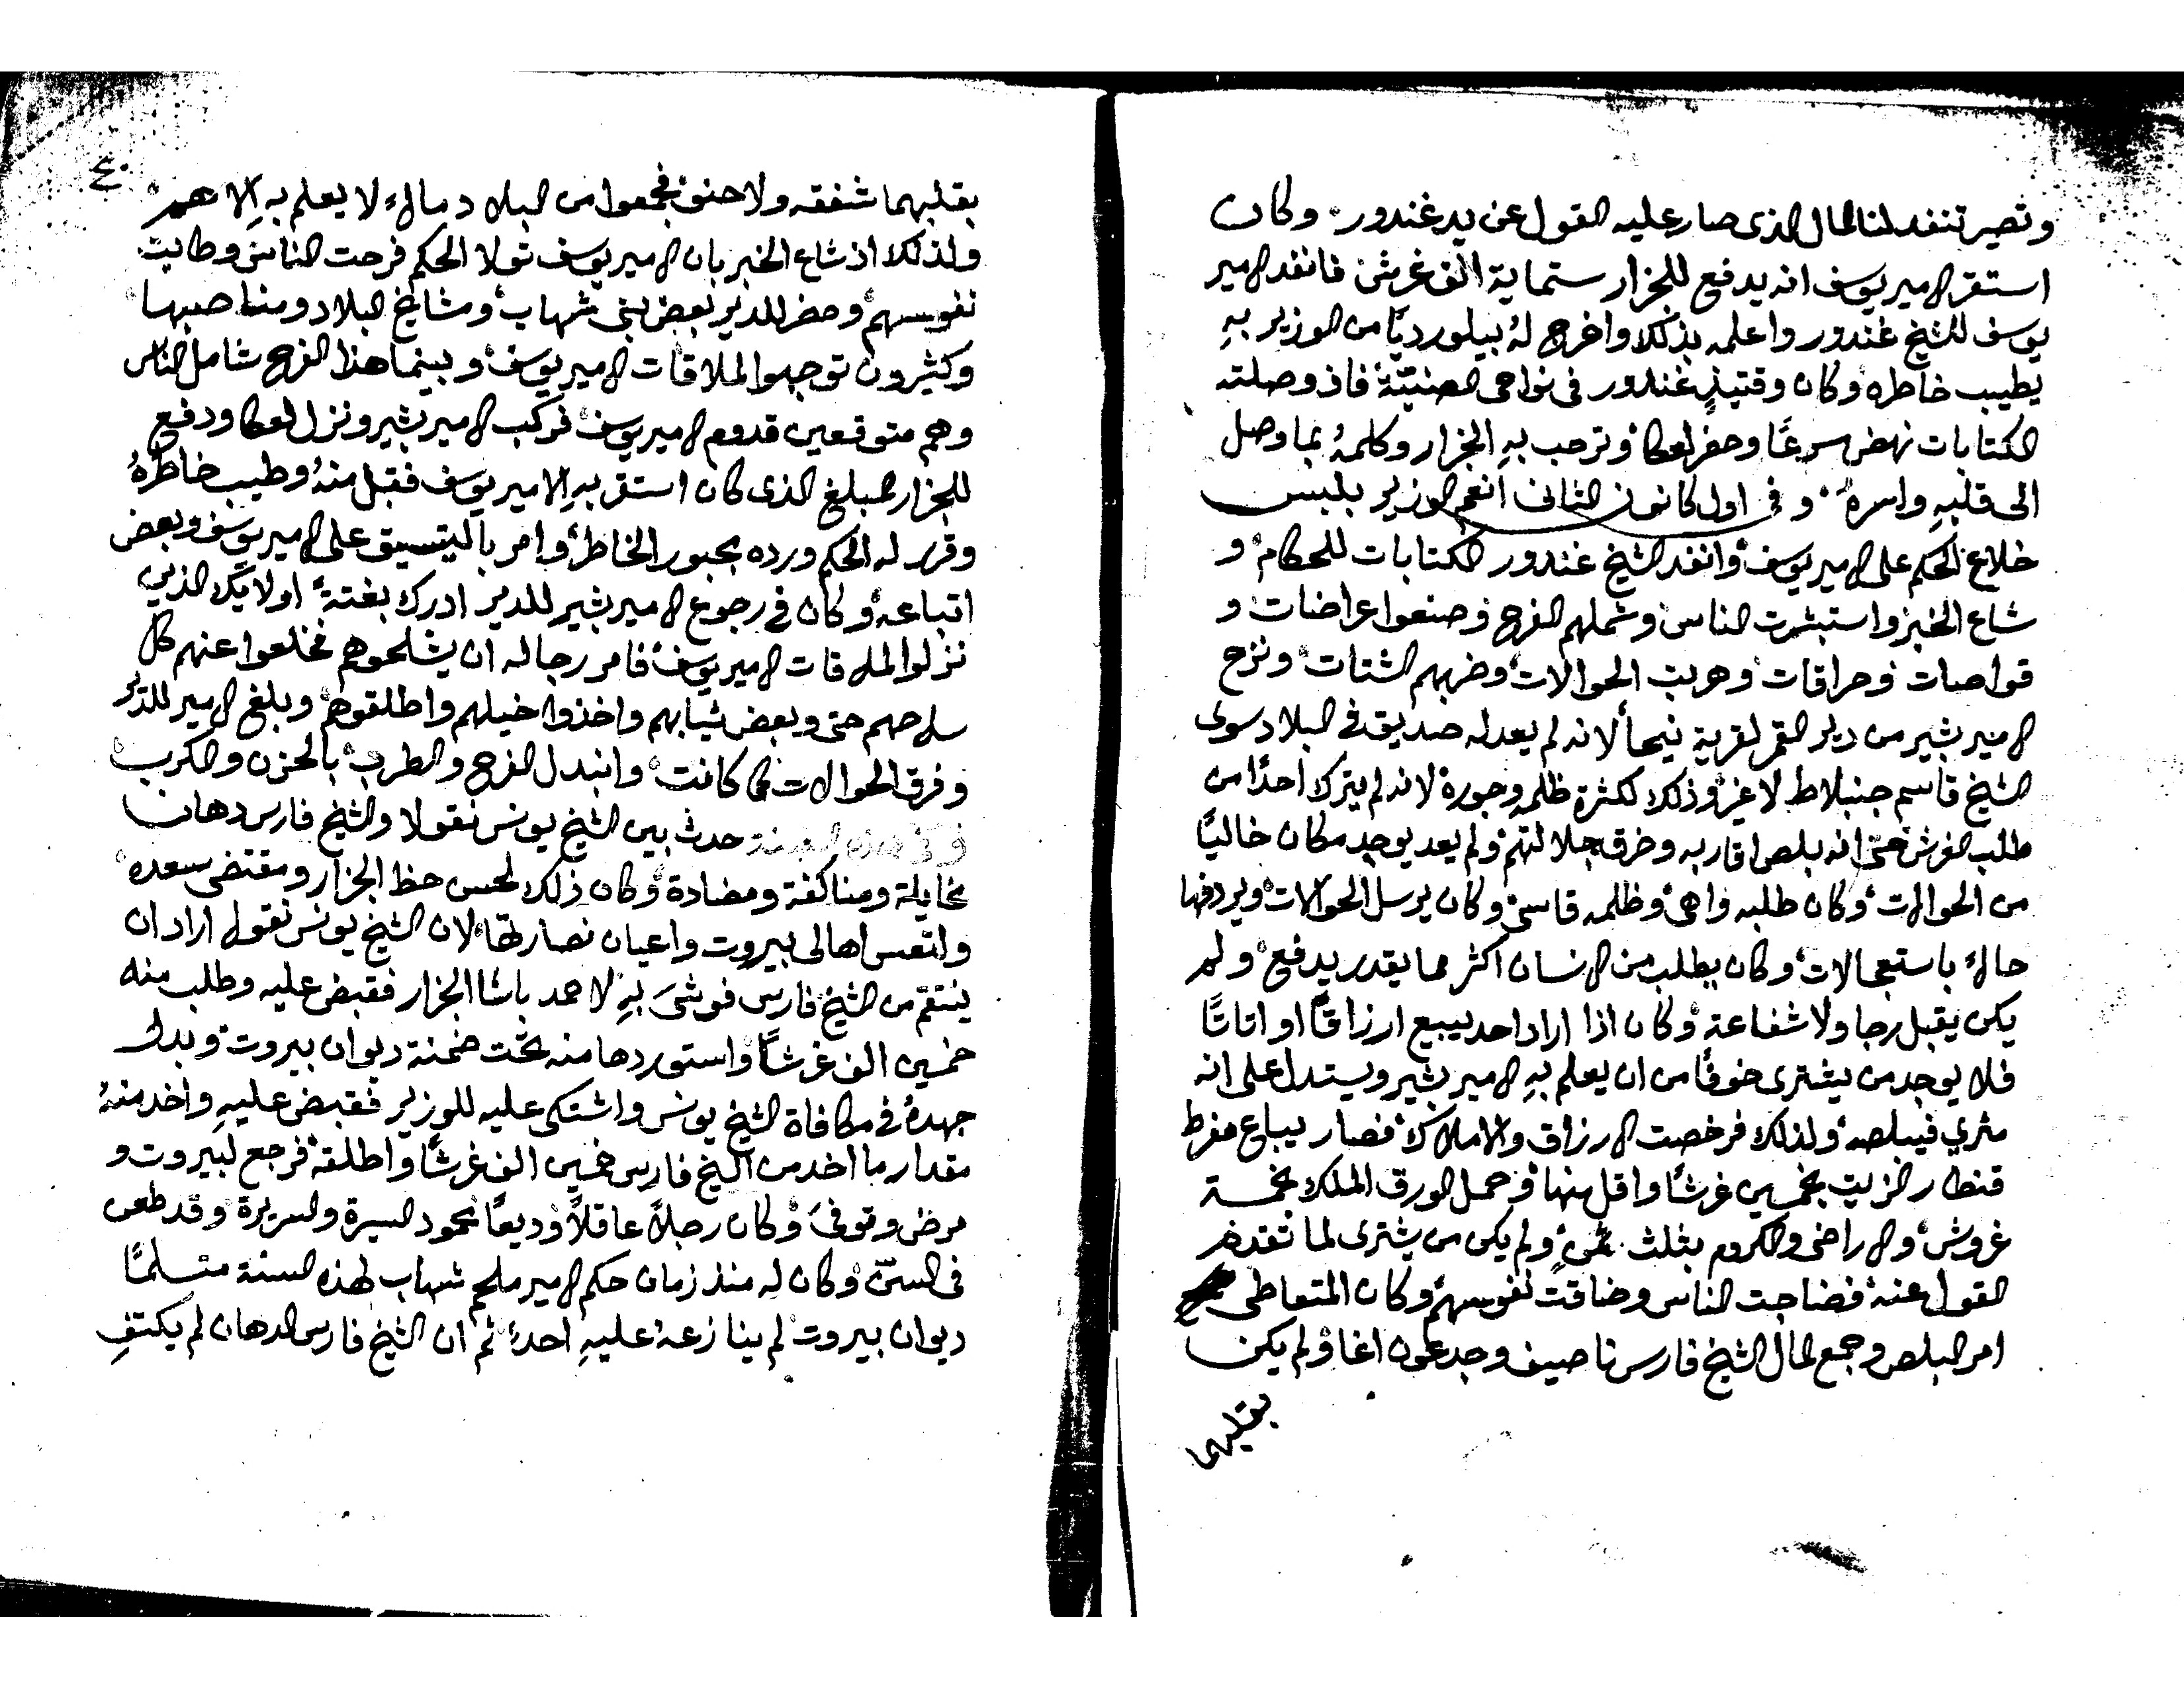 وتصير تنفد لنا المال الذى صار عليه القول عن يد غندور، وكان
استقر الامير يوسف انه يدفع للجزار ستماية الف غرش، فانفد الامير
يوسف للشيخ غندور واعلمه بذلك واخرج لهُ بيلورديًا من الوزير بهِ
يطيب خاطره، وكان وقتيذٍ غندور فى نواحى الضنيّة، فاذ وصلته
الكتابات نهض سرعًا وحضر لعكا، وترحب بهِ الجزار وكلمهُ بما وصل
الى قلبهِ واسره، وفى اول كانون الثانى انعم الوزير بلبس
خلاع الحكم على الامير يوسف، وانفد الشيخ غندور الكتابات للحكام، و
شاع الخبر، واستبشرت الناس وشملهم الفرح، وصنعوا عراضات، و
قواصات، وحراقات، وهربت الحوالات، وضربهم الشتات، ونزح
الامير بشير من دير القمر لقرية نيحا، لانه لم يعد له صديق فى البلاد سوى
الشيخ قاسم جنبلاط لا غير، وذلك لكثرة ظلمهِ وجوره، لانه لم يترك احدًا من
طلب الغرش، حتى انه بلص اقاربه وخرق جلالتهم، ولم يعد يوجد مكان خاليًا
من الحوالات، وكان طلبه واهى، وظلمه قاسى، وكان يرسل الحوالات، ويردفها
حالاً باستعجالات، وكان يطلب من الانسان اكثر مما يقدر يدفع، ولم
يكن يقبل رجا ولا شفاعة، وكان اذا اراد احد يبيع ارزاقًا او اتاتًا
فلا يوجد من يشترى خوفًا من ان يعلم بهِ الامير بشير ويستدل على انه
مثرى فيبلصه، ولذلك فرخصت الارزاق والاملاك، فصار يباع مفرط
قنطار الزيت بخمسين غرشًا واقل منها، وحمل الورق الملك بخمسة
غروش، والاراضى والكروم بثلث ثمنٍ، ولم يكن من يشترى لما تقدم
القول عنهُ، فضاجت الناس وضاقت نفوسهم، وكان المتعاطى
امر البلص وجمع المال الشيخ فارس ناصيف وجدعون اغا، ولم يكن
بقلبهما
٤٠
بقلبهما شفقه ولا حنو، فجمعوا من البلاد مالاً لا يعلم بهِ الا هم
ولذلك اذ شاع الخبر بان الامير يوسف تولا الحكم فرحت الناس وطابت
نفوسهم، وحضر للدير بعض بنى شهاب، ومشايخ البلاد ومناصبها
وكثيرون توجهوا لملاقات الامير يوسف، وبينما هذا الفرح شامل الناس
وهم متوقعين قدوم الامير يوسف، فركب الامير بشير ونزل لعكا ودفع
للجزار المبلغ الذى كان استقر بهِ الامير يوسف فقبل منهُ وطيب خاطرهُ
وقرر له الحكم ورده بجبور الخاطر، وامر باليتسيق على الامير يوسف وبعض
اتباعه، وكان فى رجوع الامير بشير للدير ادرك بغتةً اولايك الذين
نزلوا لملاقات الامير يوسف، فامر رجاله ان يشلحوهم فخلعوا عنهم كل
سلاحهم حتى وبعض ثيابهم واخذوا خيلهم واطلقوهم، وبلغ الامير للدير
وفرق الحوالات كما كانت، وانبدل الفرح والطرب، بالحزن والكرب
وفى هذه السنة حدث بين الشيخ يونس نقولا والشيخ فارس دهان
مخايلة ومناكفة ومضادة، وكان ذلك لحسن حظ الجزار ومقتضى سعده
واتعس اهالى بيروت واعيان نصارتها، لان الشيخ يونس نقولا اراد ان
ينتقم من الشيخ فارس فوشىَ بهِ لاحمد باشا الجزار فقبض عليه وطلب منه
خمسين الف غرشًا، واستوردها منه تحت ضمنة ديوان بيروت، وبدل
جهدهُ فى مكافاة الشيخ يونس واشتكى عليه للوزير، فقبض عليهِ واخد منهُ
مقدار ما اخد من الشيخ فارس خمسين الف غرشًا واطلقهُ، فرجع لبيروت و
مرض وتوفىَ، وكان رجلاً عاقلاً وديعًا محمود السيرة والسريرة، وقد طعن
فى السنّ، وكان له منذ زمان حكم الامير ملحم شهاب لهذه السنة متسلمًا
ديوان بيروت، لم ينازعهُ عليهِ احدٌ، ثم ان الشيخ فارس الدهان لم يكتفِ